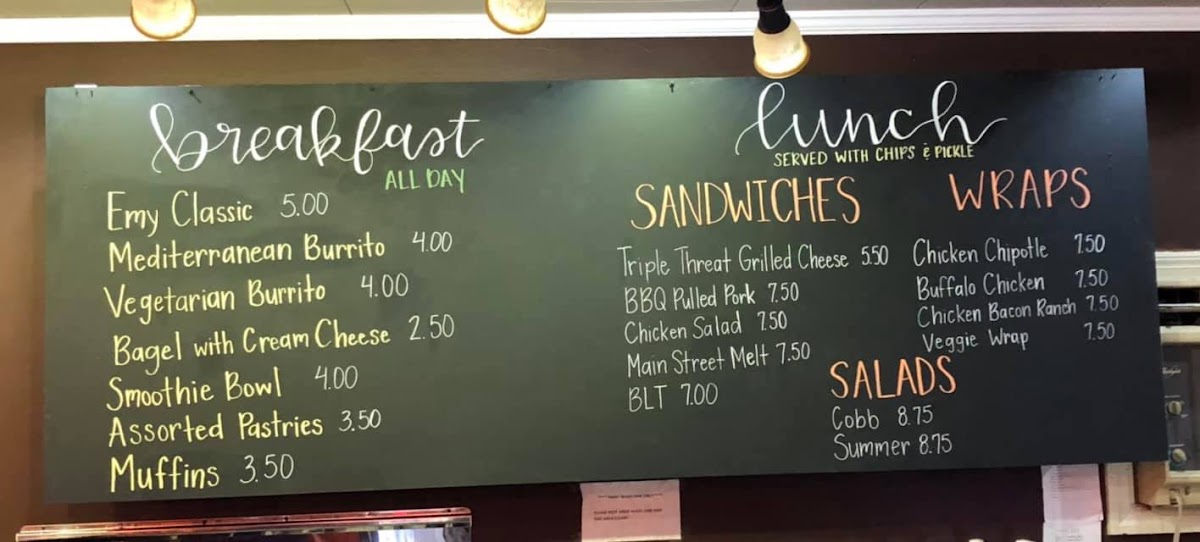 breakfast
ALL DAY
Emy Classic 5.00
Mediterranean Burrito 4.00
Vegetarian Burrito 4.00
Bagel with Cream Cheese 2.50
Smoothie Bowl 4.00
Assorted Pastries 3.50
Muffins 3.50
lunch
SERVED WITH CHIPS & PICKLE
SANDWICHES
Triple Threat Grilled Cheese 5.50
BBQ Pulled Pork 7.50
Chicken Salad 7.50
Main Street Melt 7.50
BLT 7.00
WRAPS
Chicken Chipotle 7.50
Buffalo Chicken 7.50
Chicken Bacon Ranch 7.50
Veggie Wrap 7.50
SALADS
Cobb 8.75
Summer 8.75